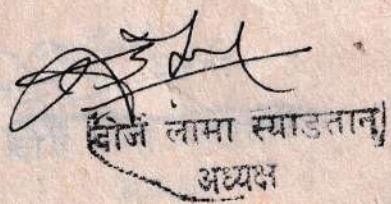 वीर्ज लामा स्याङतान
अध्यक्ष